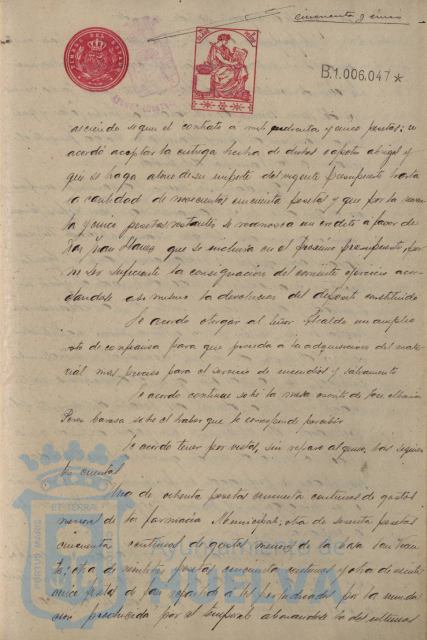 cincuenta y cinco
B.1.006.047*
asciende segun el contrato a mil cuarenta y cinco pesetas; se
acordó aceptar la entrega hecha de dichos capotes abrigos y
que se haga abono de su importe del vigente presupuesto hasta
la cantidad de novecientas cincuenta pesetas y que por la noven
ta y cinco pesetas restantes se reconozca un credito a favor de
Don Juan que se incluiria en el proximo presupuesto por
no ser suficiente la consignacion del corriente ejercicio acor
dandose asi mismo la devolucion del deposito constituido
Se acordó otorgar al Señor Alcalde un amplio
voto de confianza para que proceda a la adquisicion del mate
rial mas preciso para el servicio de incendios y salvamento
Se acordó continue sobre la mesa escrito de
Perez sobre el haber que le corresponde percibir
Se acordó tener por vistas, sin reparo alguno, las siguien
tes cuentas
Una de ochenta pesetas cincuenta centimos de gastos
menores de la farmacia Municipal; otra de pesetas
cincuenta centimos de gastos menores de la casa
otra de pesetas cincuenta centimos y otra de
pesetas de pan repartido a los perjudicados por la inunda
cion producida por el temporal abonandose las dos ultimas
ET TERRÆ
Ayuntamiento de
HUELVA